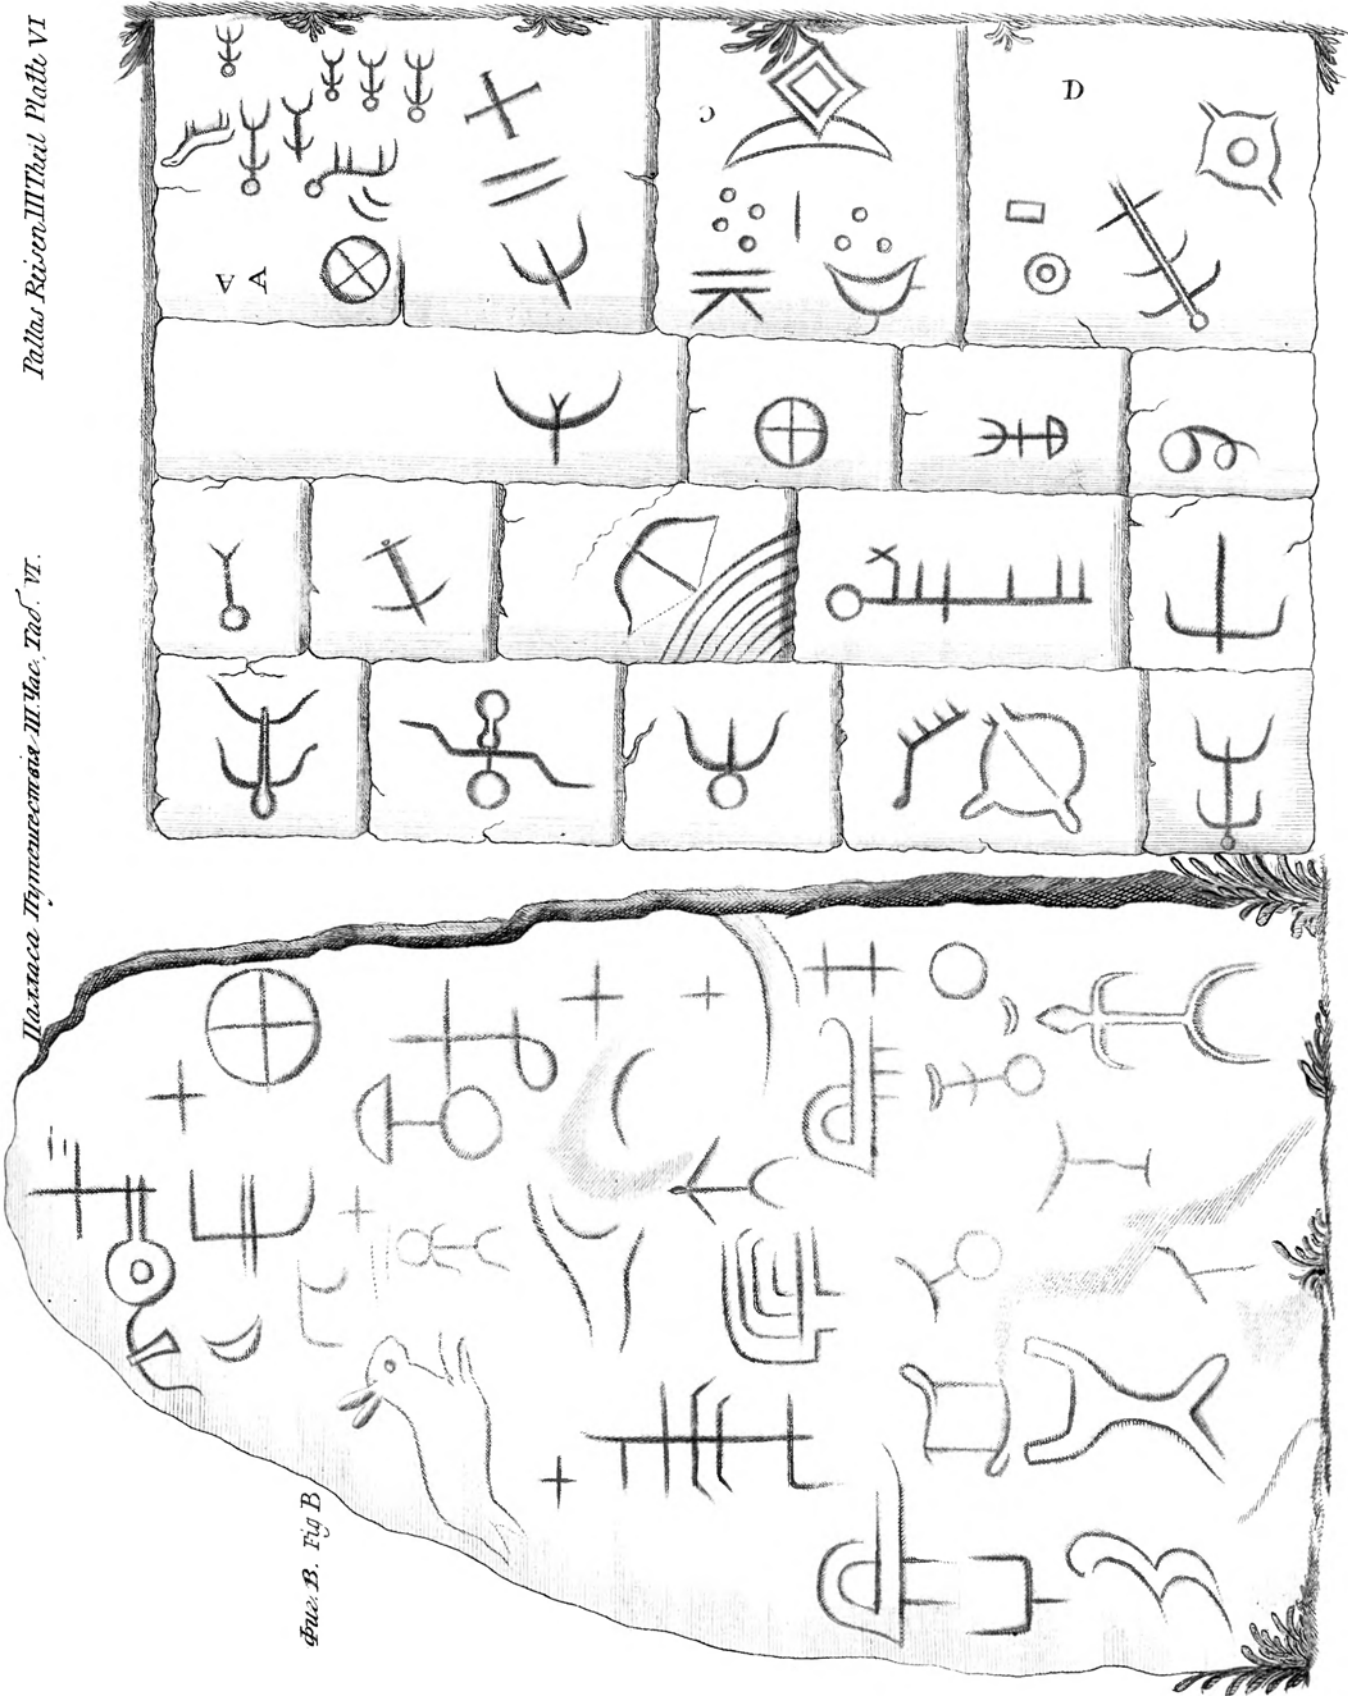 Палласа Путешествія III. Час. Таб. VI.
Pallas Reisen III Theil Platte VI
A
A
C
D
Фиг. B. Fig B